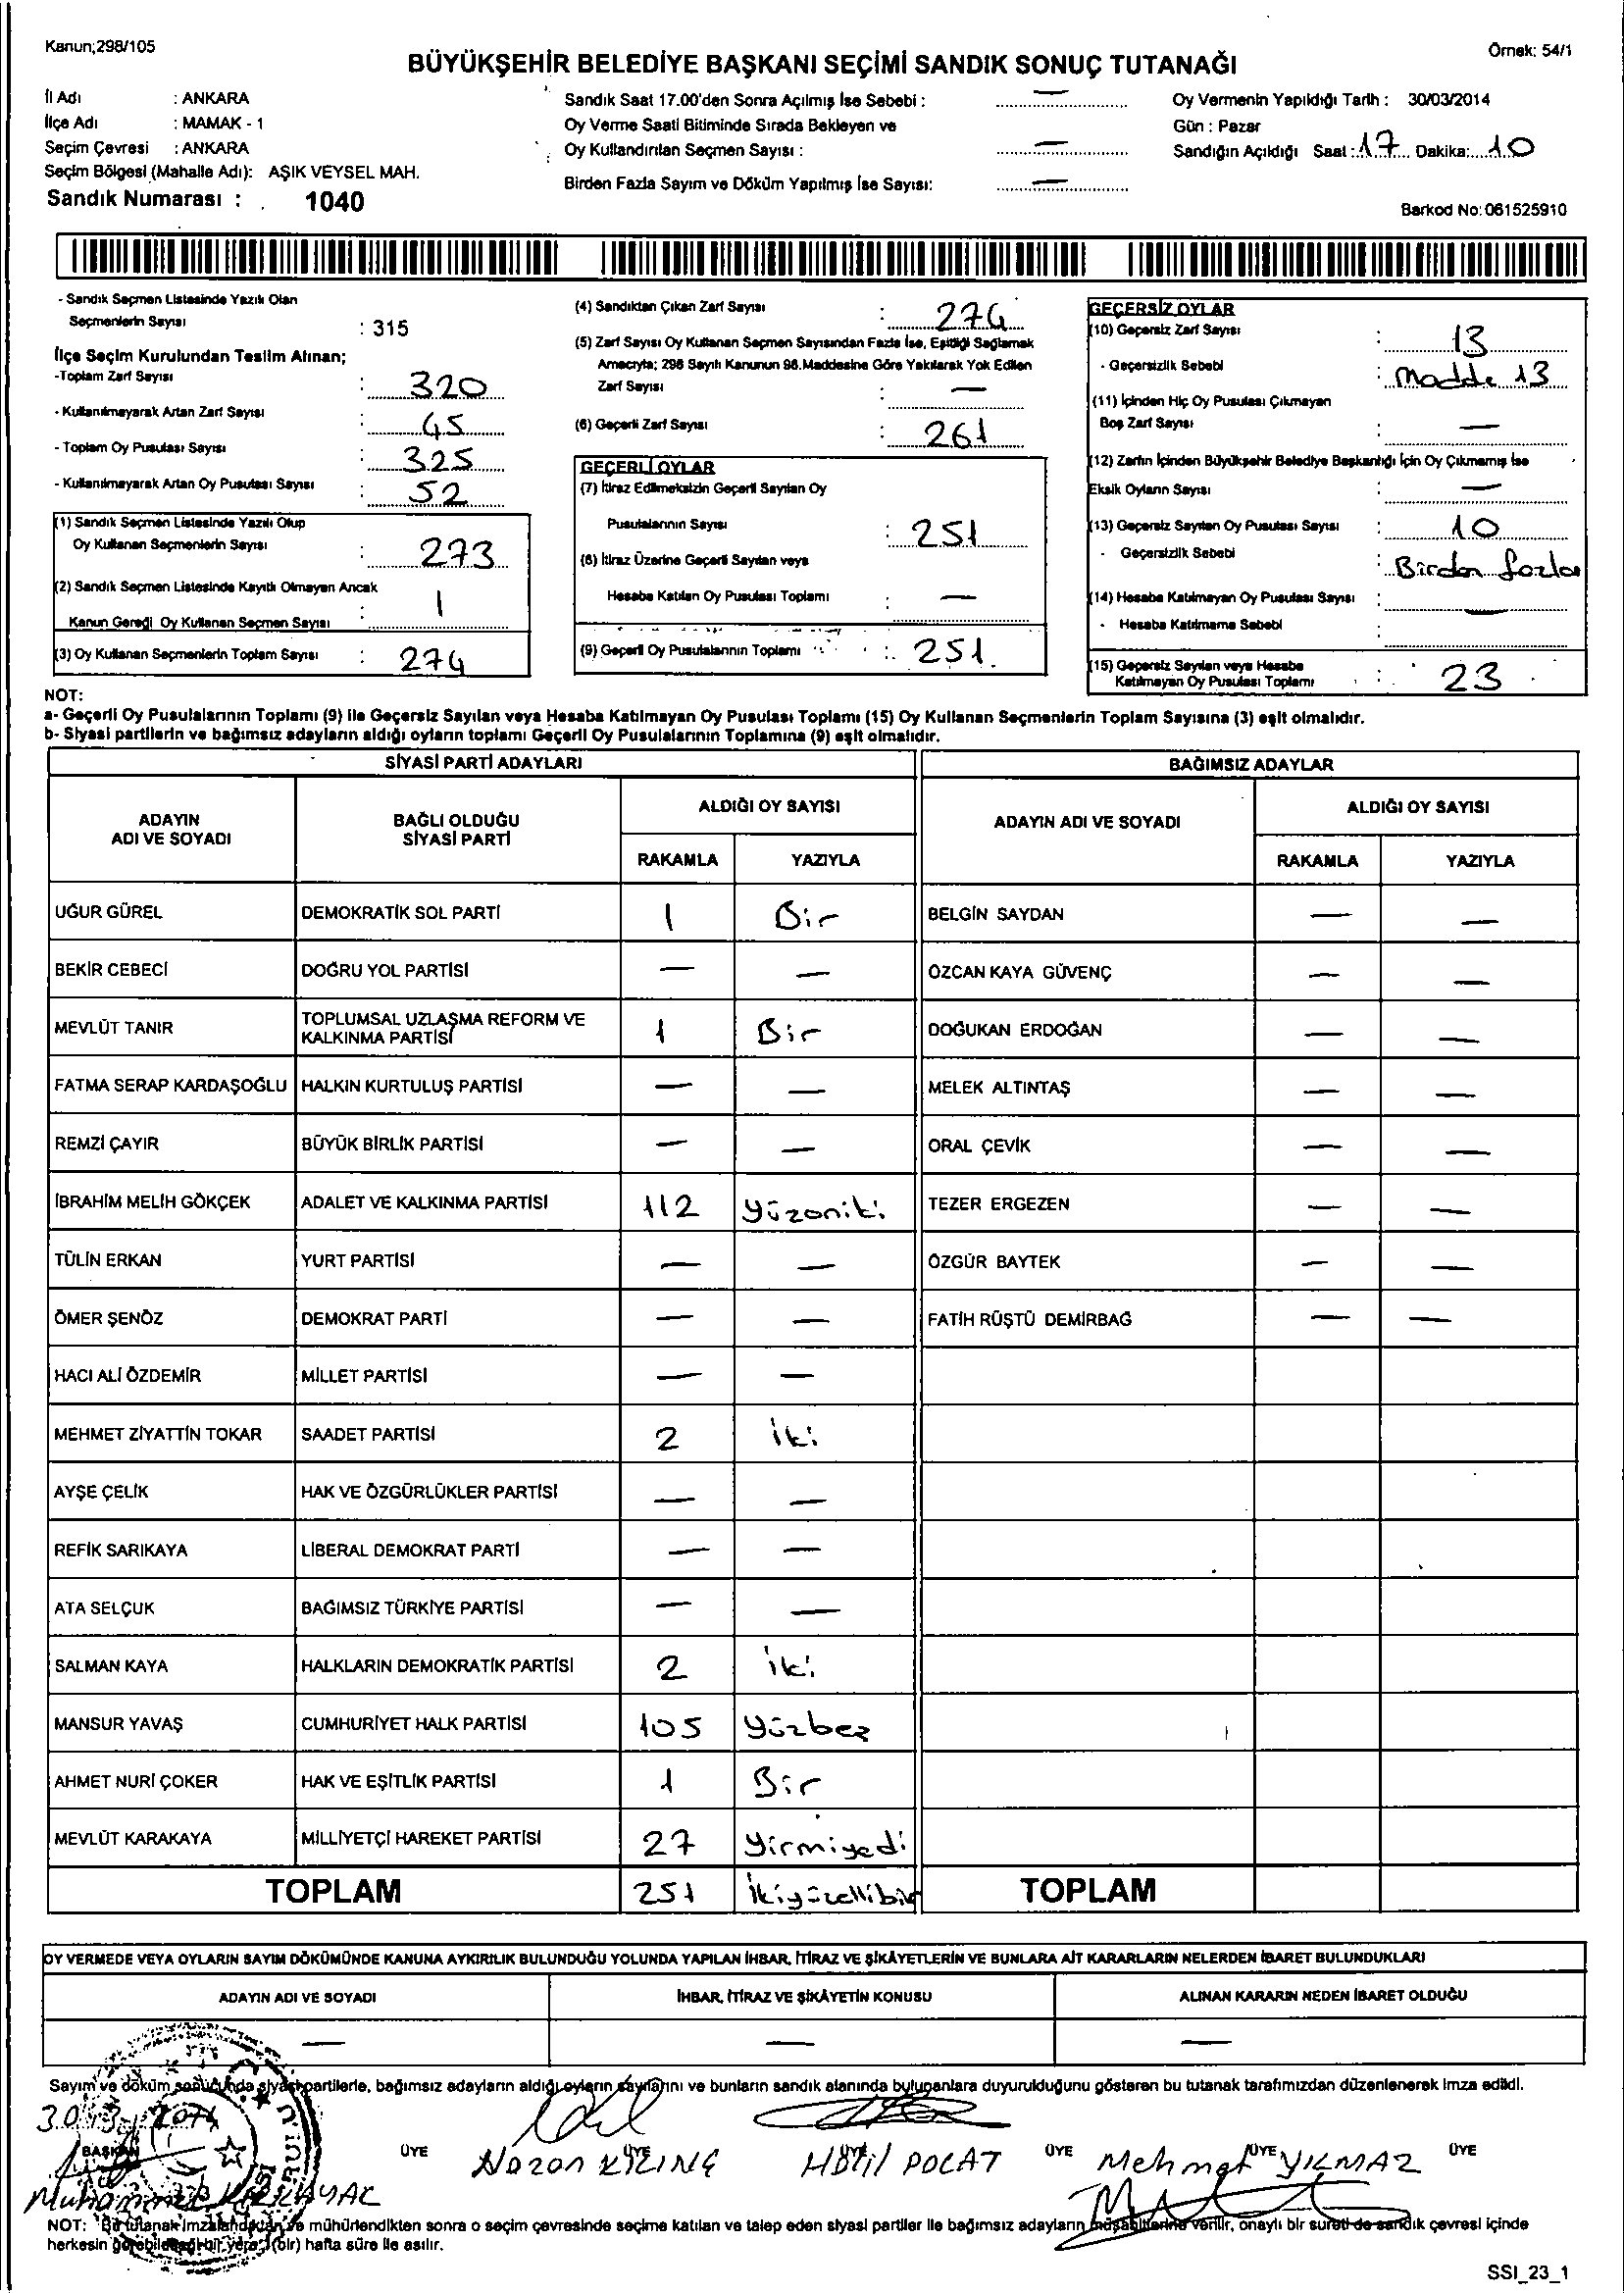 Kanun;298/105
Örnek: 54/1
BÜYÜKŞEHİR BELEDİYE BAŞKANI SEÇİMİ SANDIK SONUÇ TUTANAĞI
İl Adı : ANKARA
İlçe Adı : MAMAK - 1
Seçim Çevresi : ANKARA
Seçim Bölgesi (Mahalle Adı): AŞIK VEYSEL MAH.
Sandık Numarası : 1040
Sandık Saat 17.00'den Sonra Açılmış İse Sebebi : —
Oy Verme Saati Bitiminde Sırada Bekleyen ve
Oy Kullandırılan Seçmen Sayısı : —
Birden Fazla Sayım ve Döküm Yapılmış İse Sayısı: —
Oy Vermenin Yapıldığı Tarih : 30/03/2014
Gün : Pazar
Sandığın Açıldığı Saat : 17 Dakika: 10
Barkod No: 061525910
- Sandık Seçmen Listesinde Yazılı Olan
Seçmenlerin Sayısı : 315
İlçe Seçim Kurulundan Teslim Alınan;
-Toplam Zarf Sayısı : 320
- Kullanılmayarak Artan Zarf Sayısı : 45
- Toplam Oy Pusulası Sayısı : 325
- Kullanılmayarak Artan Oy Pusulası Sayısı : 52
(1) Sandık Seçmen Listesinde Yazılı Olup
Oy Kullanan Seçmenlerin Sayısı : 273
(2) Sandık Seçmen Listesinde Kayıtlı Olmayan Ancak
Kanun Gereği Oy Kullanan Seçmen Sayısı : 1
(3) Oy Kullanan Seçmenlerin Toplam Sayısı : 274
(4) Sandıktan Çıkan Zarf Sayısı : 274
(5) Zarf Sayısı Oy Kullanan Seçmen Sayısından Fazla İse, Eşitliği Sağlamak
Amacıyla; 298 Sayılı Kanunun 98.Maddesine Göre Yakılarak Yok Edilen
Zarf Sayısı : —
(6) Geçerli Zarf Sayısı : 261
GEÇERLİ OYLAR
(7) İtiraz Edilmeksizin Geçerli Sayılan Oy
Pusulalarının Sayısı : 251
(8) İtiraz Üzerine Geçerli Sayılan veya
Hesaba Katılan Oy Pusulası Toplamı : —
(9) Geçerli Oy Pusulalarının Toplamı : 251
GEÇERSİZ OYLAR
(10) Geçersiz Zarf Sayısı : 13
- Geçersizlik Sebebi : Madde 13
(11) İçinden Hiç Oy Pusulası Çıkmayan
Boş Zarf Sayısı : —
(12) Zarfın İçinden Büyükşehir Belediye Başkanlığı İçin Oy Çıkmamış İse
Eksik Oyların Sayısı : —
(13) Geçersiz Sayılan Oy Pusulası Sayısı : 10
- Geçersizlik Sebebi : Birden fazla
(14) Hesaba Katılmayan Oy Pusulası Sayısı : —
- Hesaba Katılmama Sebebi :
(15) Geçersiz Sayılan veya Hesaba
Katılmayan Oy Pusulası Toplamı : 23
NOT:
a- Geçerli Oy Pusulalarının Toplamı (9) ile Geçersiz Sayılan veya Hesaba Katılmayan Oy Pusulası Toplamı (15) Oy Kullanan Seçmenlerin Toplam Sayısına (3) eşit olmalıdır.
b- Siyasi partilerin ve bağımsız adayların aldığı oyların toplamı Geçerli Oy Pusulalarının Toplamına (9) eşit olmalıdır.
SİYASİ PARTİ ADAYLARI
BAĞIMSIZ ADAYLAR
ADAYIN
ADI VE SOYADI
BAĞLI OLDUĞU
SİYASİ PARTİ
ALDIĞI OY SAYISI
RAKAMLA YAZIYLA
ADAYIN ADI VE SOYADI
ALDIĞI OY SAYISI
RAKAMLA YAZIYLA
UĞUR GÜREL DEMOKRATİK SOL PARTİ 1 Bir BELGİN SAYDAN — —
BEKİR CEBECİ DOĞRU YOL PARTİSİ — — ÖZCAN KAYA GÜVENÇ — —
MEVLÜT TANIR TOPLUMSAL UZLAŞMA REFORM VE
KALKINMA PARTİSİ 1 Bir DOĞUKAN ERDOĞAN — —
FATMA SERAP KARDAŞOĞLU HALKIN KURTULUŞ PARTİSİ — — MELEK ALTINTAŞ — —
REMZİ ÇAYIR BÜYÜK BİRLİK PARTİSİ — — ORAL ÇEVİK — —
İBRAHİM MELİH GÖKÇEK ADALET VE KALKINMA PARTİSİ 112 yüzoniki TEZER ERGEZEN — —
TÜLİN ERKAN YURT PARTİSİ — — ÖZGÜR BAYTEK — —
ÖMER ŞENÖZ DEMOKRAT PARTİ — — FATİH RÜŞTÜ DEMİRBAĞ — —
HACI ALİ ÖZDEMİR MİLLET PARTİSİ — —
MEHMET ZİYATTİN TOKAR SAADET PARTİSİ 2 iki
AYŞE ÇELİK HAK VE ÖZGÜRLÜKLER PARTİSİ — —
REFİK SARIKAYA LİBERAL DEMOKRAT PARTİ — —
ATA SELÇUK BAĞIMSIZ TÜRKİYE PARTİSİ — —
SALMAN KAYA HALKLARIN DEMOKRATİK PARTİSİ 2 iki
MANSUR YAVAŞ CUMHURİYET HALK PARTİSİ 105 yüzbeş
AHMET NURİ ÇOKER HAK VE EŞİTLİK PARTİSİ 1 Bir
MEVLÜT KARAKAYA MİLLİYETÇİ HAREKET PARTİSİ 27 yirmiyedi
TOPLAM 251 ikiyüzellibir TOPLAM
OY VERMEDE VEYA OYLARIN SAYIM DÖKÜMÜNDE KANUNA AYKIRILIK BULUNDUĞU YOLUNDA YAPILAN İHBAR, İTİRAZ VE ŞİKÂYETLERİN VE BUNLARA AİT KARARLARIN NELERDEN İBARET BULUNDUKLARI
ADAYIN ADI VE SOYADI İHBAR, İTİRAZ VE ŞİKÂYETİN KONUSU ALINAN KARARIN NEDEN İBARET OLDUĞU
— — —
Sayım ve döküm sonucunda siyasi partilerle, bağımsız adayların aldığı oyların sayılarını ve bunların sandık alanında bulunanlara duyurulduğunu gösteren bu tutanak tarafımızdan düzenlenerek imza edildi.
30/3/2014
BAŞKAN ÜYE ÜYE ÜYE ÜYE ÜYE ÜYE
Halil POLAT Mehmet YILMAZ
NOT: Bir tutanak imzalandıktan ve mühürlendikten sonra o seçim çevresinde seçime katılan ve talep eden siyasi partiler ile bağımsız adayların müşahitlerine verilir, onaylı bir sureti de sandık çevresi içinde
herkesin görebileceği bir yere 1 (bir) hafta süre ile asılır.
SSI_23_1